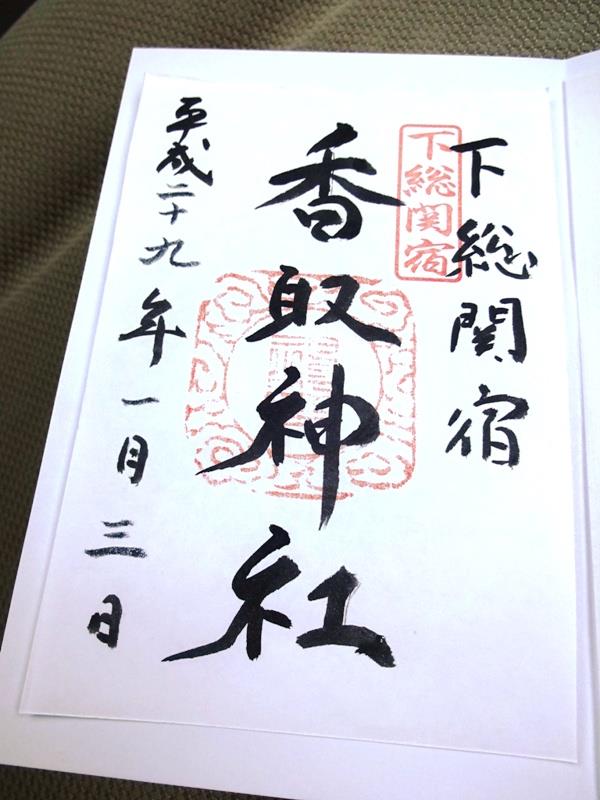 下総関宿
下総関宿
香取神社
平成二十九年一月三日